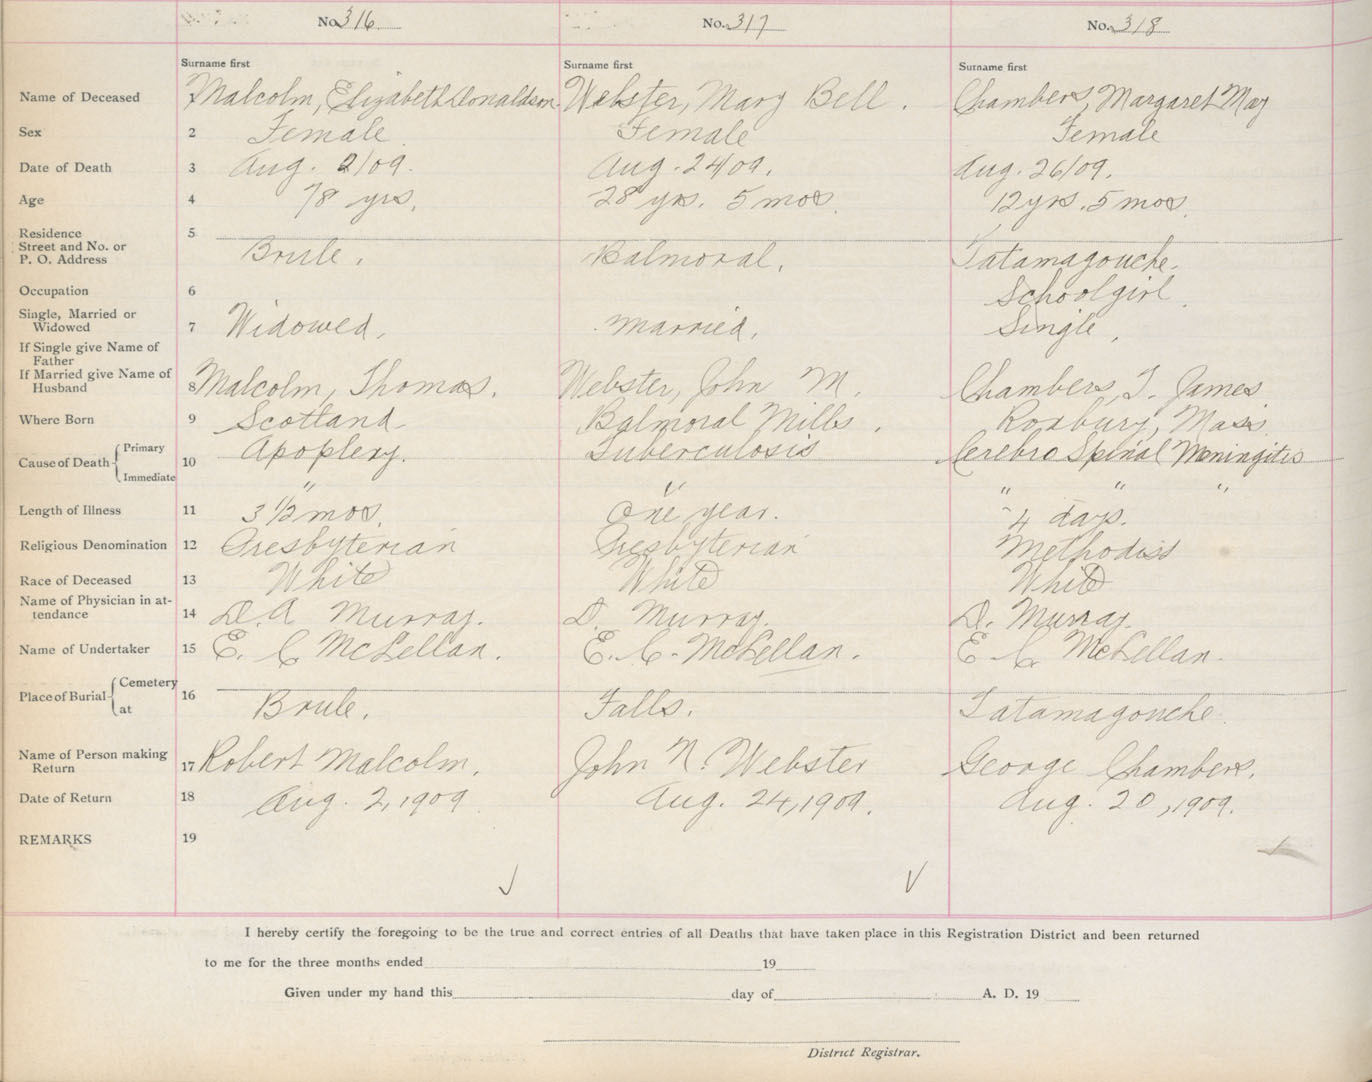 No. 316 No. 317 No. 318
Surname first Surname first Surname first
Name of Deceased Malcolm, Elizabeth Donaldson. Webster, Mary Bell. Chambers, Margaret May
Sex 2 Female Female Female
Date of Death 3 Aug. 2/09. Aug. 24/09. Aug. 26/09.
Age 4 78 yrs. 28 yrs. 5 mos. 12 yrs. 5 mos.
Residence 5
Street and No. or
P. O. Address Brule. Balmoral. Tatamagouche.
Occupation 6 Schoolgirl.
Single, Married or
Widowed 7 Widowed. Married. Single.
If Single give Name of
Father
If Married give Name of
Husband 8 Malcolm, Thomas. Webster, John M. Chambers, T. James
Where Born 9 Scotland Balmoral Mills. Roxbury, Mass
Cause of Death Primary 10 Apoplexy. Tuberculosis Cerebro Spinal Meningitis
Immediate " " " " "
Length of Illness 11 3 1/2 mos. One year. 4 days.
Religious Denomination 12 Presbyterian Presbyterian Methodist
Race of Deceased 13 White White White
Name of Physician in at-
tendance 14 D. A Murray. D. Murray. D. Murray.
Name of Undertaker 15 E. C McLellan. E. C. McLellan. E C McLellan.
Place of Burial Cemetery 16
at Brule. Falls. Tatamagouche.
Name of Person making
Return 17 Robert Malcolm. John N. Webster George Chambers.
Date of Return 18 Aug. 2, 1909 Aug. 24, 1909. Aug. 20, 1909.
REMARKS 19
I hereby certify the foregoing to be the true and correct entries of all Deaths that have taken place in this Registration District and been returned
to me for the three months ended 19
Given under my hand this day of A. D. 19
District Registrar.